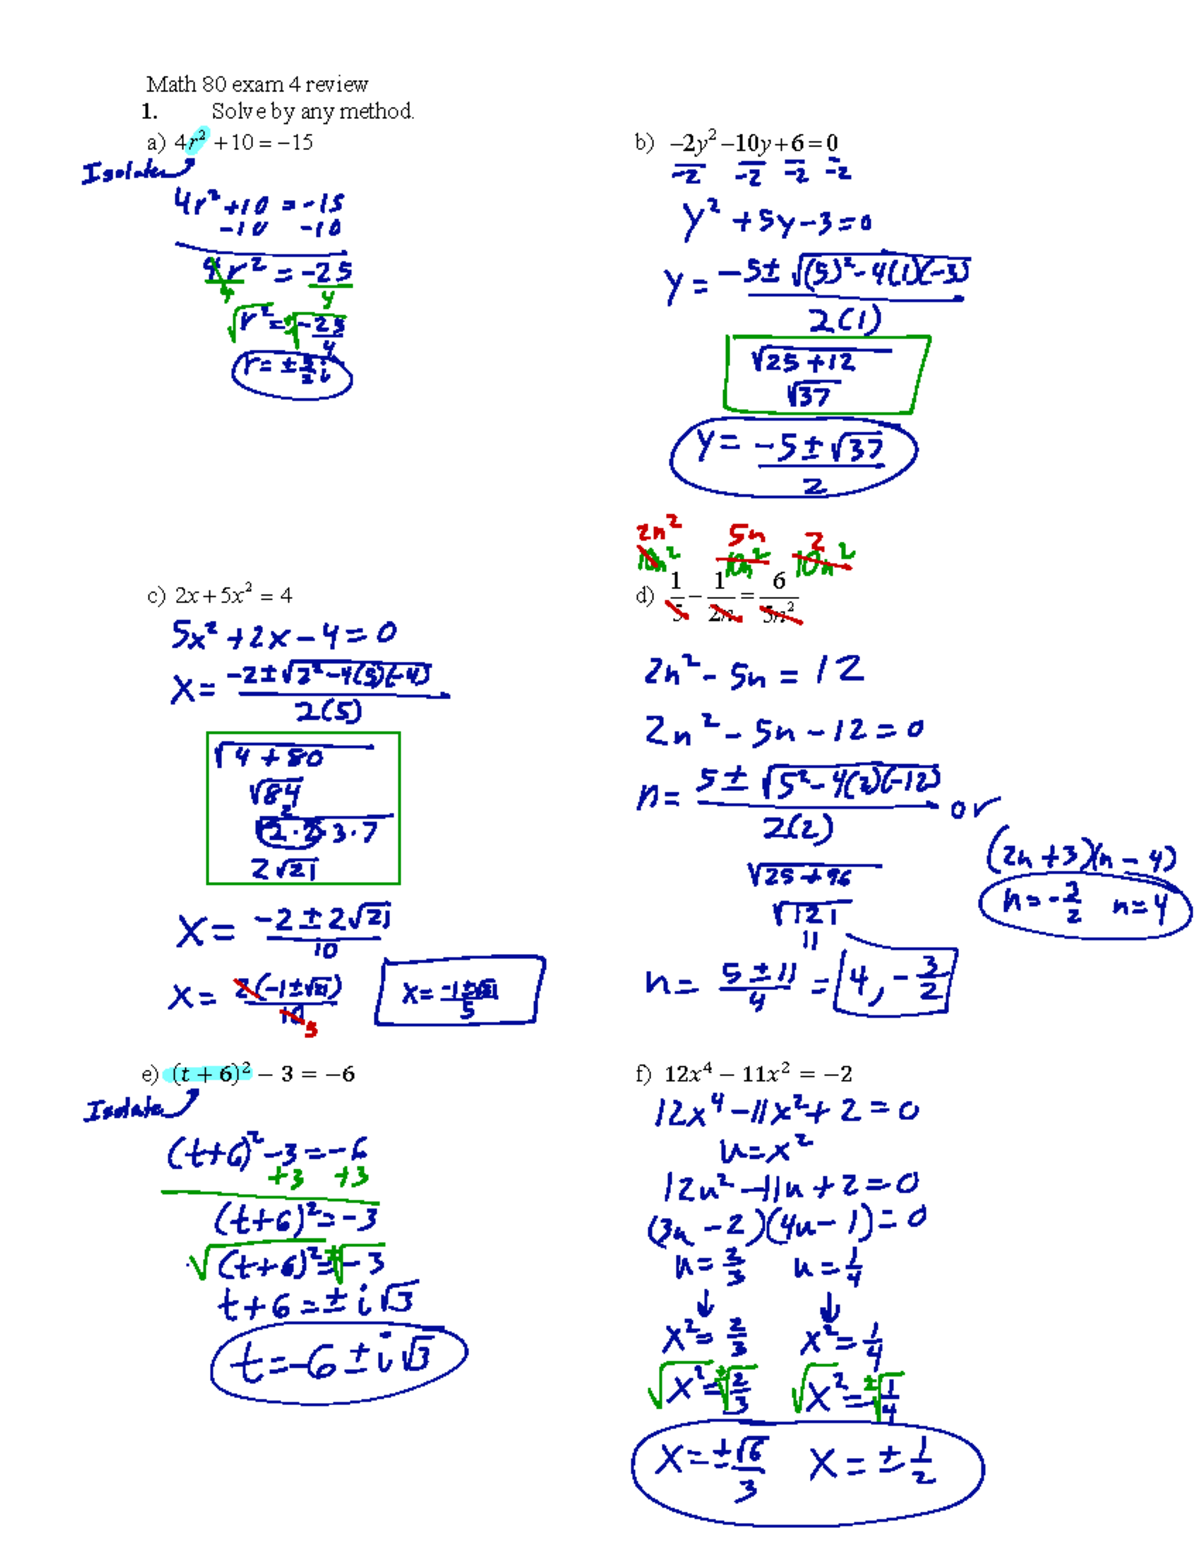 Math 80 exam 4 review
1. Solve by any method.
a) 4r² + 10 = −15
Isolate
4r² + 10 = -15
-10 -10
4r² = -25
4 4
√r² = ±√-25/4
r = ± 5/2 i
b) −2y² −10y + 6 = 0
-2 -2 -2 -2
y² + 5y - 3 = 0
y = -5 ± √(5)² - 4(1)(-3)
2(1)
√25 + 12
√37
y = -5 ± √37
2
c) 2x + 5x² = 4
5x² + 2x - 4 = 0
x = -2 ± √2² - 4(5)(-4)
2(5)
√4 + 80
√84
2
√2·2·3·7
2√21
x = -2 ± 2√21
10
x = 2(-1 ± √21)
10 5
x = -1 ± √21
5
2n² 5n 2
10n² 10n² 10n²
d) 1/5 − 1/2n = 6/5n²
2n² - 5n = 12
2n² - 5n - 12 = 0
n = 5 ± √5² - 4(2)(-12)
2(2)
or
(2n + 3)(n - 4)
n = -3/2 n = 4
√25 + 96
√121
11
n = 5 ± 11 = 4, -3/2
4
e) (t + 6)² − 3 = −6
Isolate
(t+6)² - 3 = -6
+3 +3
(t+6)² = -3
√(t+6)² = ±√-3
t + 6 = ± i√3
t = -6 ± i√3
f) 12x⁴ − 11x² = −2
12x⁴ - 11x² + 2 = 0
u = x²
12u² - 11u + 2 = 0
(3u - 2)(4u - 1) = 0
u = 2/3 u = 1/4
↓ ↓
x² = 2/3 x² = 1/4
√x² = ±√2/3 √x² = ±√1/4
x = ±√6/3 x = ± 1/2